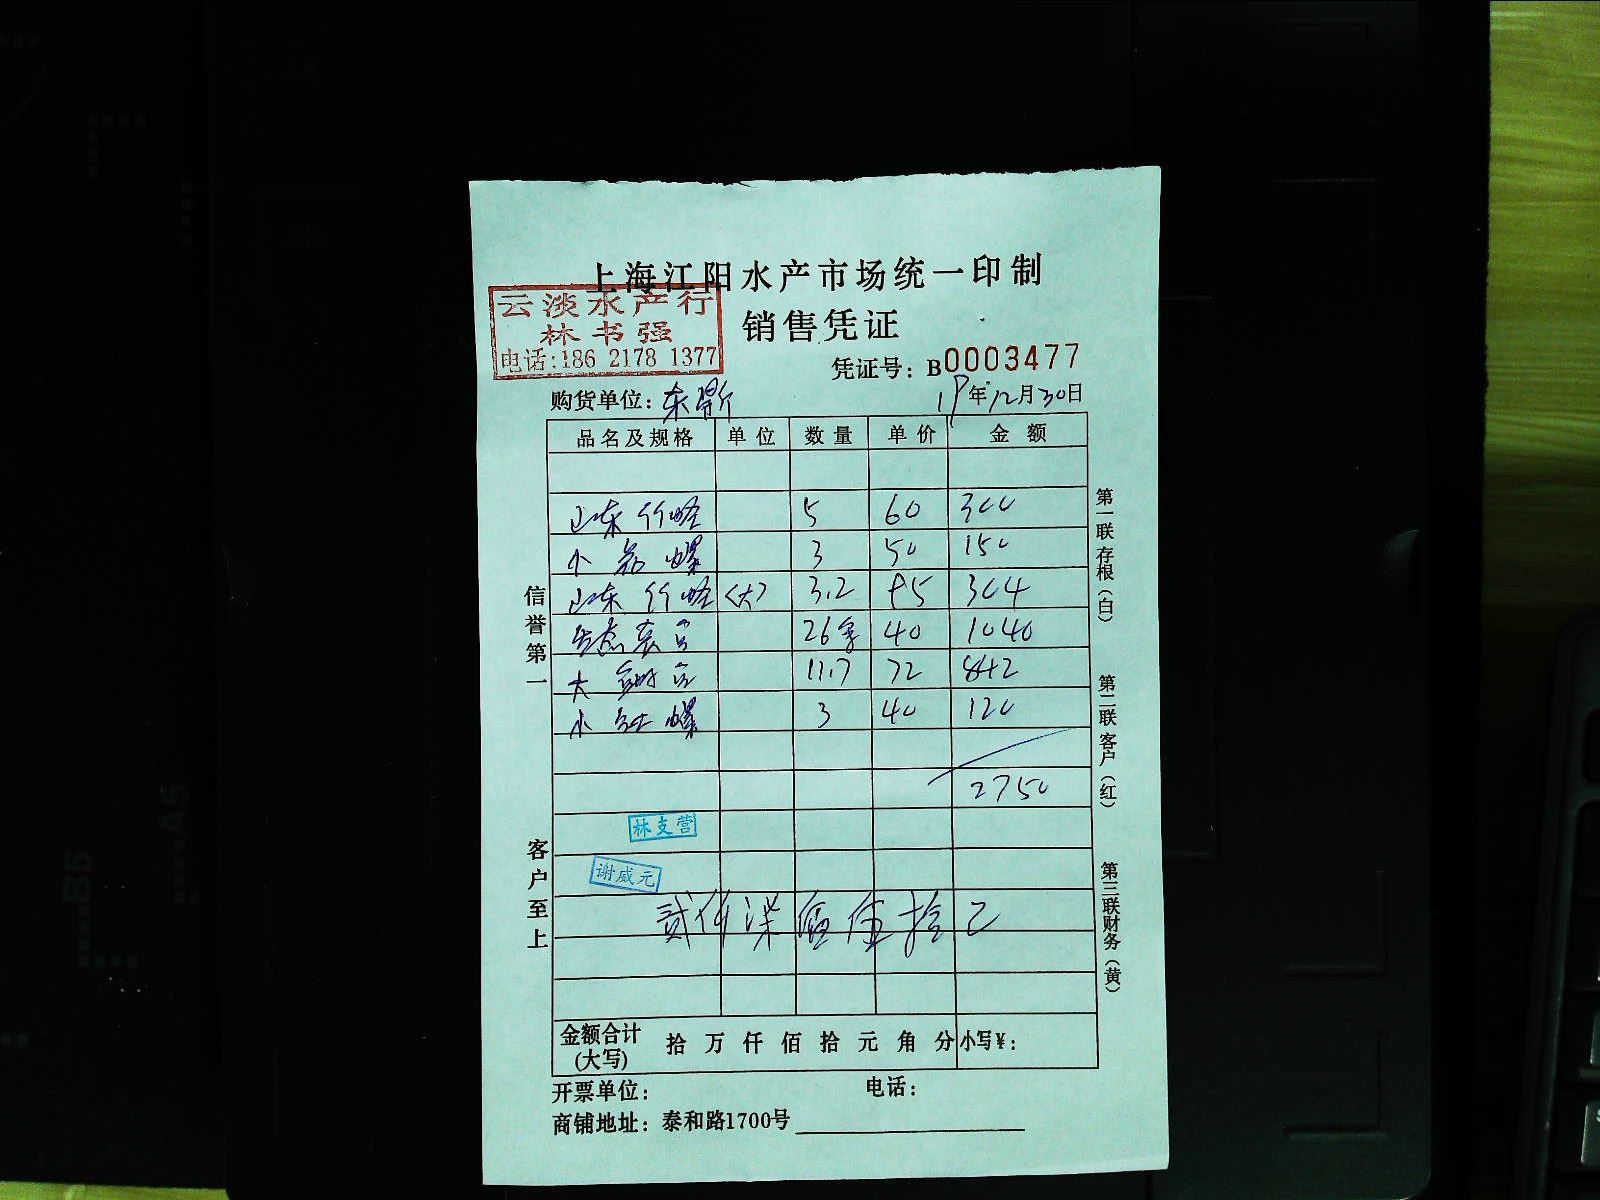 上海江阳水产市场统一印制
云淡水产行
林书强
电话:186 2178 1377
销售凭证
凭证号：B0003477
购货单位：东 19年12月30日
品名及规格 单位 数量 单价 金额
山东竹蛏 5 60 300
小 螺 3 50 150
山东竹蛏 <大> 3.2 95 304
生态 26 40 1040
大 11.7 72 842
小 螺 3 40 120
2750
林支营
谢威元
贰仟柒佰伍拾
金额合计(大写) 拾万仟佰拾元角分 小写¥：
开票单位： 电话：
商铺地址：泰和路1700号
信誉第一
客户至上
第一联存根(白)
第二联客户(红)
第三联财务(黄)